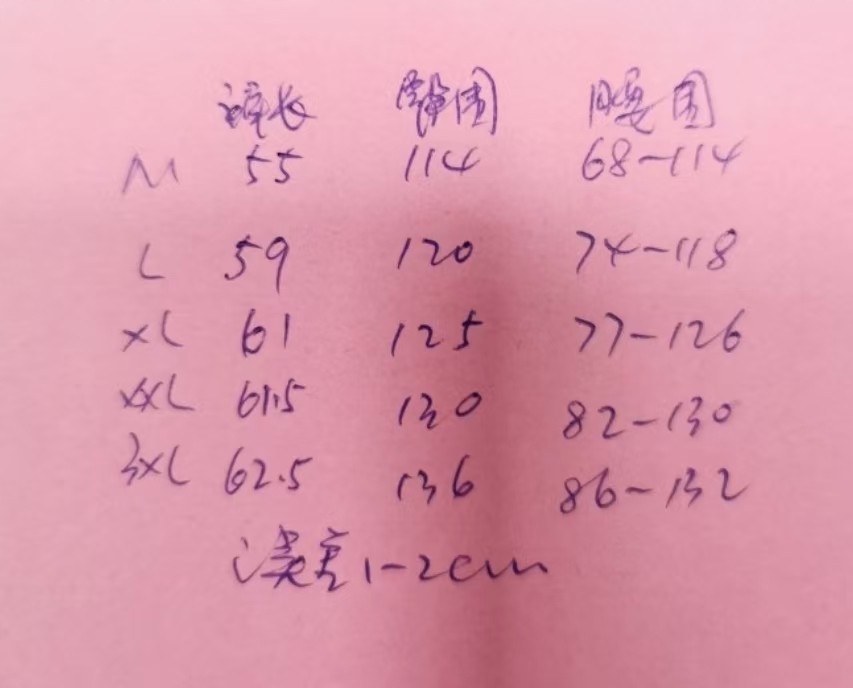 裤长 臀围 腰围
M 55 114 68-114
L 59 120 74-118
XL 61 125 77-126
XXL 61.5 130 82-130
3XL 62.5 136 86-132
误差1-2cm